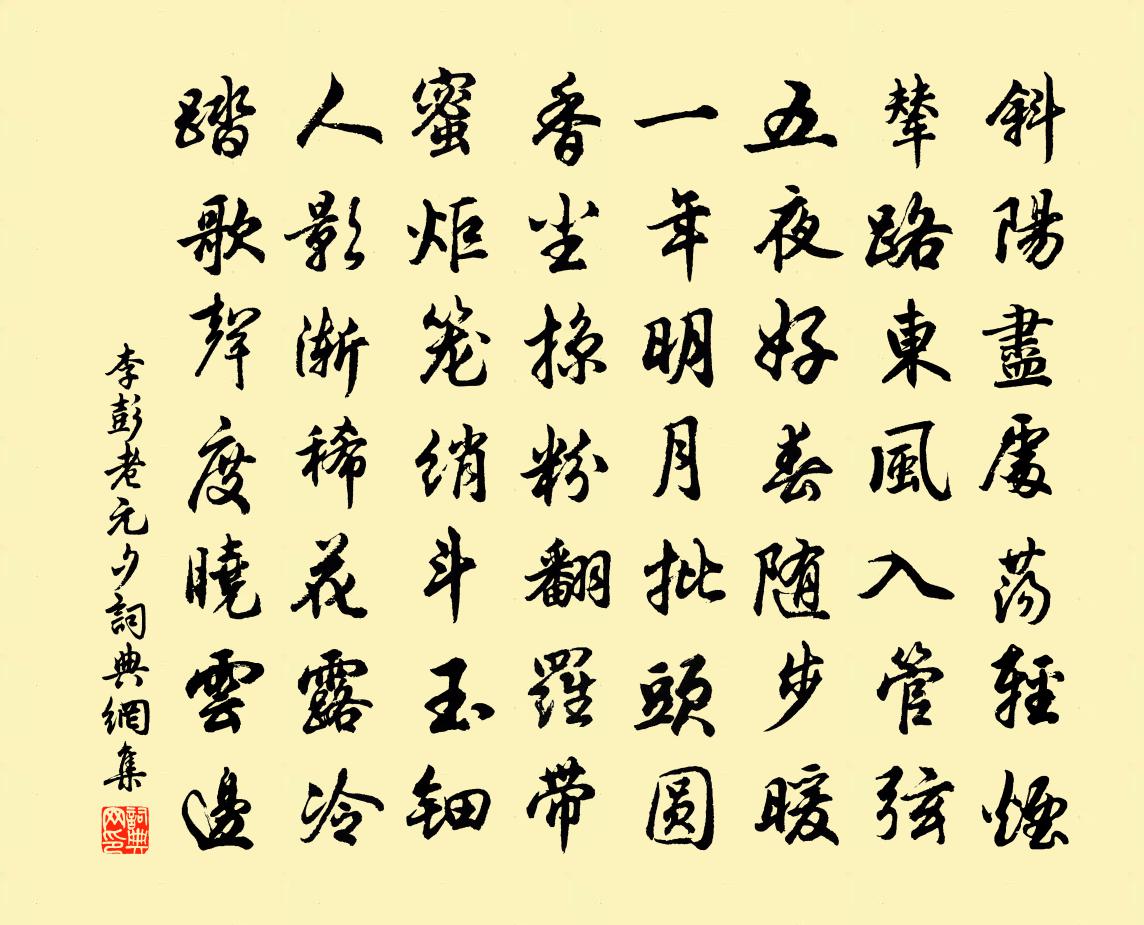 斜陽盡處蕩輕煙
輦路東風入管弦
五夜好春随步暖
一年明月批頭圆
香尘掠粉翻羅带
蜜炬笼绡斗玉钿
人影渐稀花露冷
踏歌聲度曉雲邊
李彭老元夕詞典網集
詞典网印